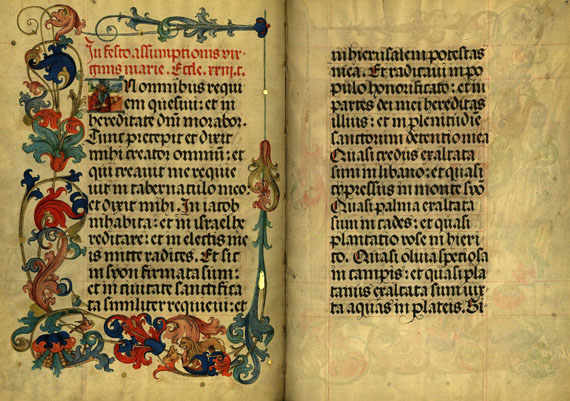 In festo assumptionis vir-
ginis marie. Eccle. xxiiii.c.
In omnibus requi
em quesiui: et in
hereditate dni morabor.
Tunc precepit et dixit
mihi creator omniū: et
qui creauit me requie
uit in tabernaculo meo:
et dixit mihi. In iacob
inhabita: et in israel he
reditare: et in electis me
is mitte radices. Et sic
in syon firmata sum:
et in ciuitate sanctifica
ta similiter requieui: et
in hierusalem potestas
mea. Et radicaui in po
pulo honorificato: et in
partes dei mei hereditas
illius: et in plenitudīe
sanctorum detentio mea
Quasi cedrus exaltata
sum in libano: et quasi
cypressus in monte syō
Quasi palma exaltata
sum in cades: et quasi
plantatio rose in hieri
co. Quasi oliua speciosa
in campis: et quasi pla
tanus exaltata sum iux
ta aquas in plateis. Si